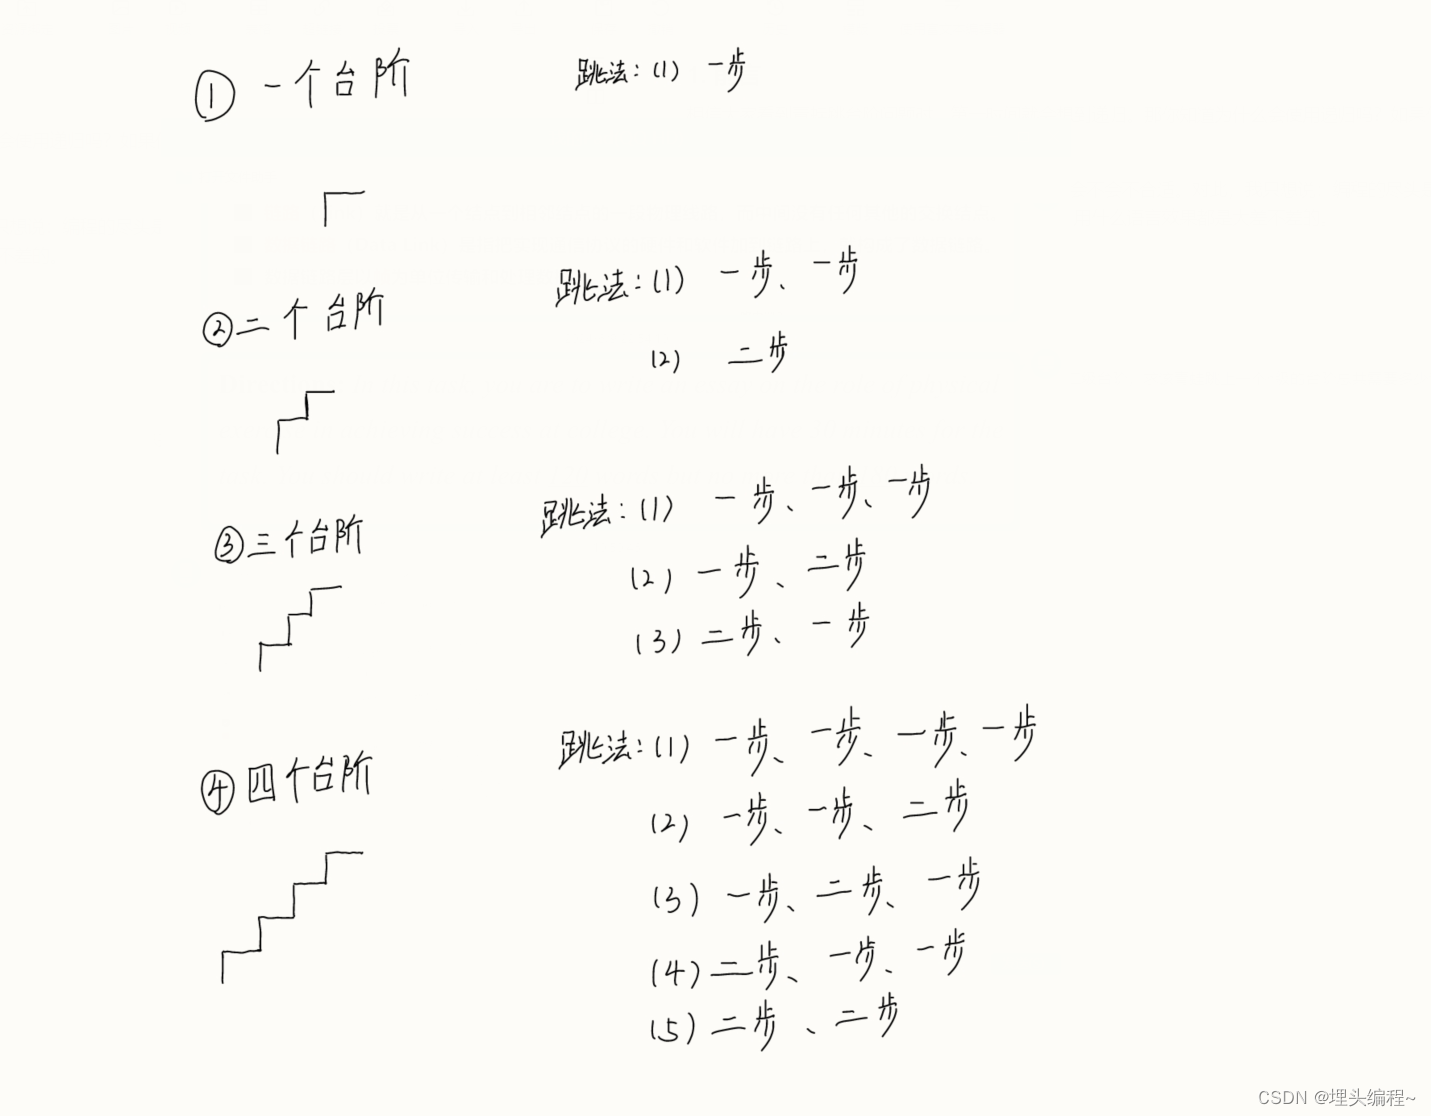 ① 一个台阶 跳法:(1) 一步
②二个台阶 跳法:(1) 一步、一步
(2) 二步
③三个台阶 跳法:(1) 一步、一步、一步
(2) 一步、二步
(3) 二步、一步
④四个台阶 跳法:(1) 一步、一步、一步、一步
(2) 一步、一步、二步
(3) 一步、二步、一步
(4) 二步、一步、一步
(5) 二步、二步
CSDN @埋头编程~